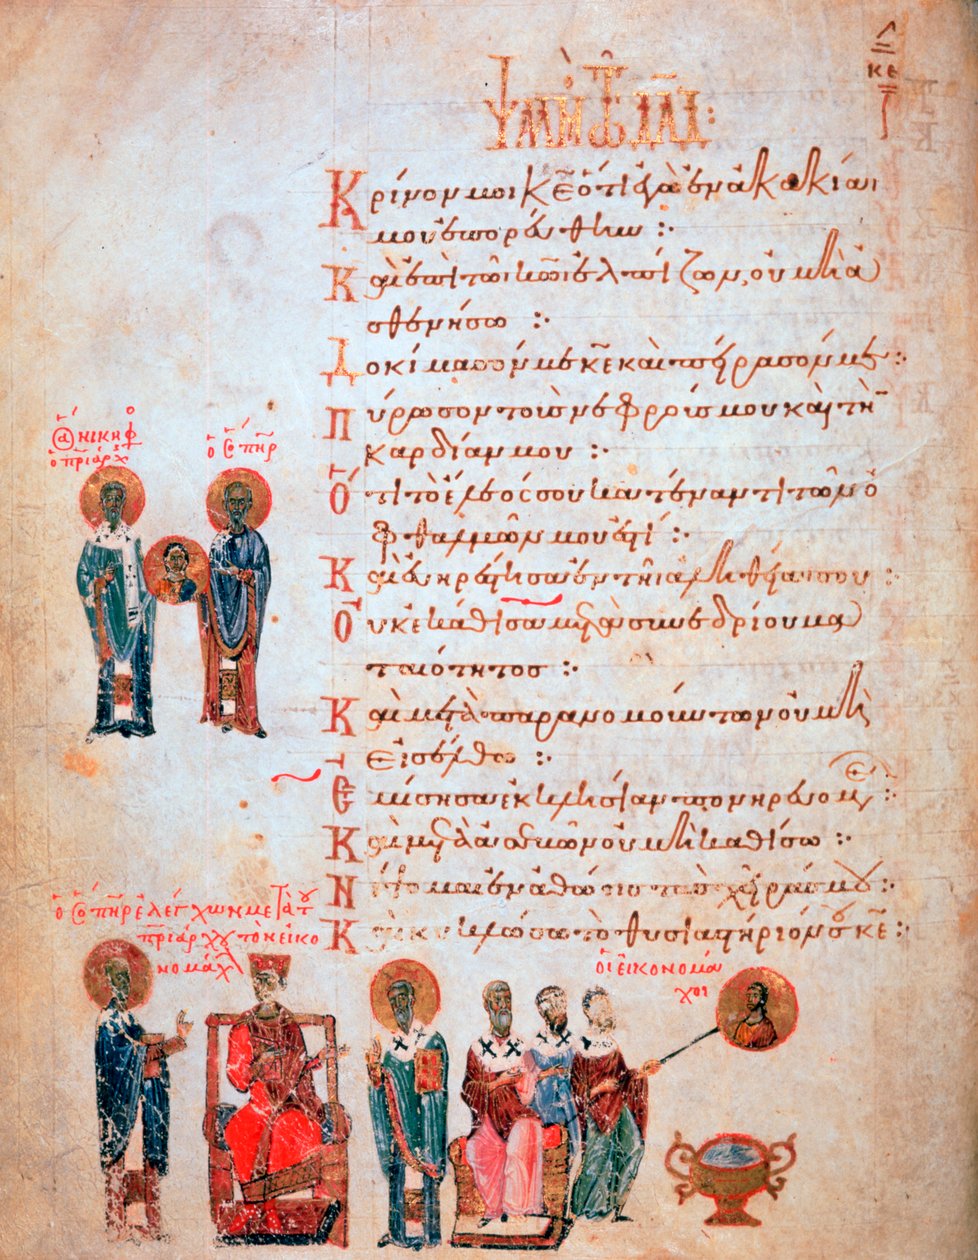 κε
Κρῖνόν μοι κ̅ε̅ ὅτι ἐγὼ ἐν ἀκακίαι
μου ἐπορεύθην :·
Καὶ ἐπὶ τῶι κ̅ω̅ι ἐλπίζων, οὐ μὴ ἀ
σθενήσω :·
Δοκίμασόν με κ̅ε̅ καὶ πείρασόν με :·
πύρωσον τοὺς νεφρούς μου καὶ τὴν
καρδίαν μου :·
Ὅτι τὸ ἔλεός σου κατέναντι τῶν ὀ
φθαλμῶν μου ἐστί :·
ὁ ἅ νικηφ
ὁ πριάρχ
ὁ στ̅η̅ρ
Καὶ εὐηρέστησα ἐν τῆι ἀληθείαι σου :·
Οὐκ ἐκάθισα μετὰ συνεδρίου μα
ταιότητος :·
Καὶ μετὰ παρανομούντων οὐ μὴ
εἰσέλθω :·
Ἐμίσησα ἐκκλησίαν πονηρευομε :·
Καὶ μετὰ ἀσεβῶν οὐ μὴ καθίσω :·
Νίψομαι ἐν ἀθώοις τὰς χεῖράς μου :·
Καὶ κυκλώσω τὸ θυσιαστήριόν σου κ̅ε̅ :·
ἐλέγχων μετὰ τοῦ
πριάρχου τὸν εἰκο
νομάχ
οἱ εἰκονομά
χοι